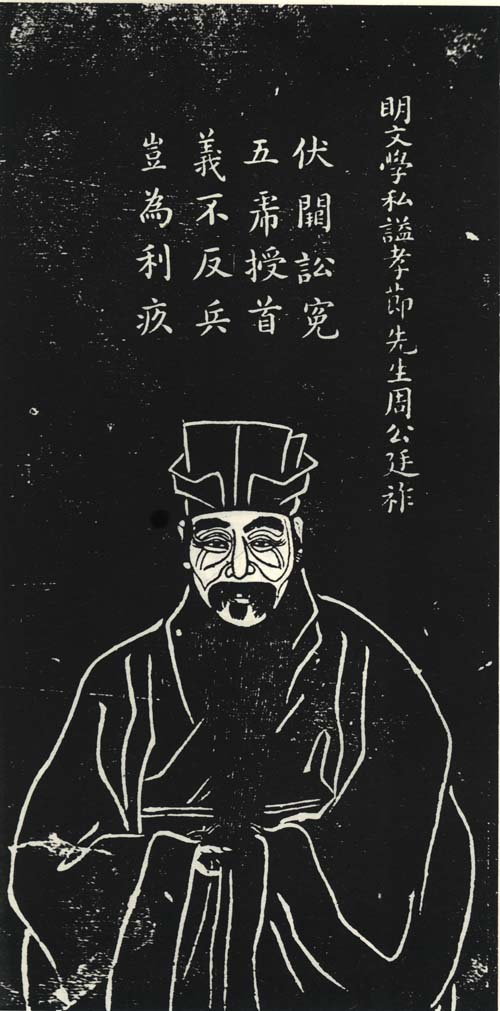 明文學私謚孝節先生周公廷祚
伏闕訟冤
五虎授首
義不反兵
豈為利疚